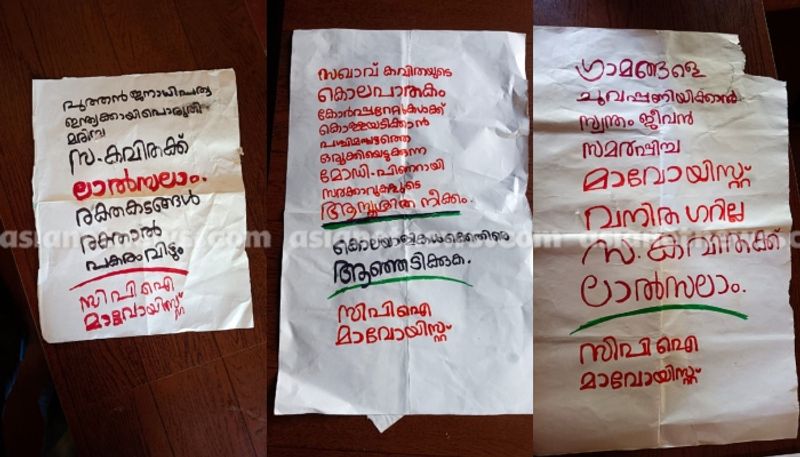 പുത്തൻ ജനാധിപത്യ
ഇന്ത്യക്കായിപൊരുതി
മരിച്ച
സ. കവിതക്ക്
ലാൽസലാം.
രക്തകടങ്ങൾ
രക്തത്താൽ
പകരംവീട്ടും
സി പി ഐ
മാവോയിസ്റ്റ്
സഖാവ് കവിതയുടെ
കൊലപാതകം
കോർപ്പറേറ്റുകൾക്ക്
കൊള്ളയടിക്കാൻ
പശ്ചിമഘട്ടത്തെ
ഒരുക്കിയെടുക്കുന്ന
മോഡി-പിണറായി
സർക്കാറുകളുടെ
ആസൂത്രിത നീക്കം.
കൊലയാളികൾക്കെതിരെ
ആഞ്ഞടിക്കുക.
സിപിഐ
മാവോയിസ്റ്റ്
ഗ്രാമങ്ങളെ
ചുവപ്പണിയിക്കാൻ
സ്വന്തം ജീവൻ
സമർപ്പിച്ച
മാവോയിസ്റ്റ്
വനിത ഗറില്ല
സ. കവിതക്ക്
ലാൽസലാം.
സിപിഐ
മാവോയിസ്റ്റ്